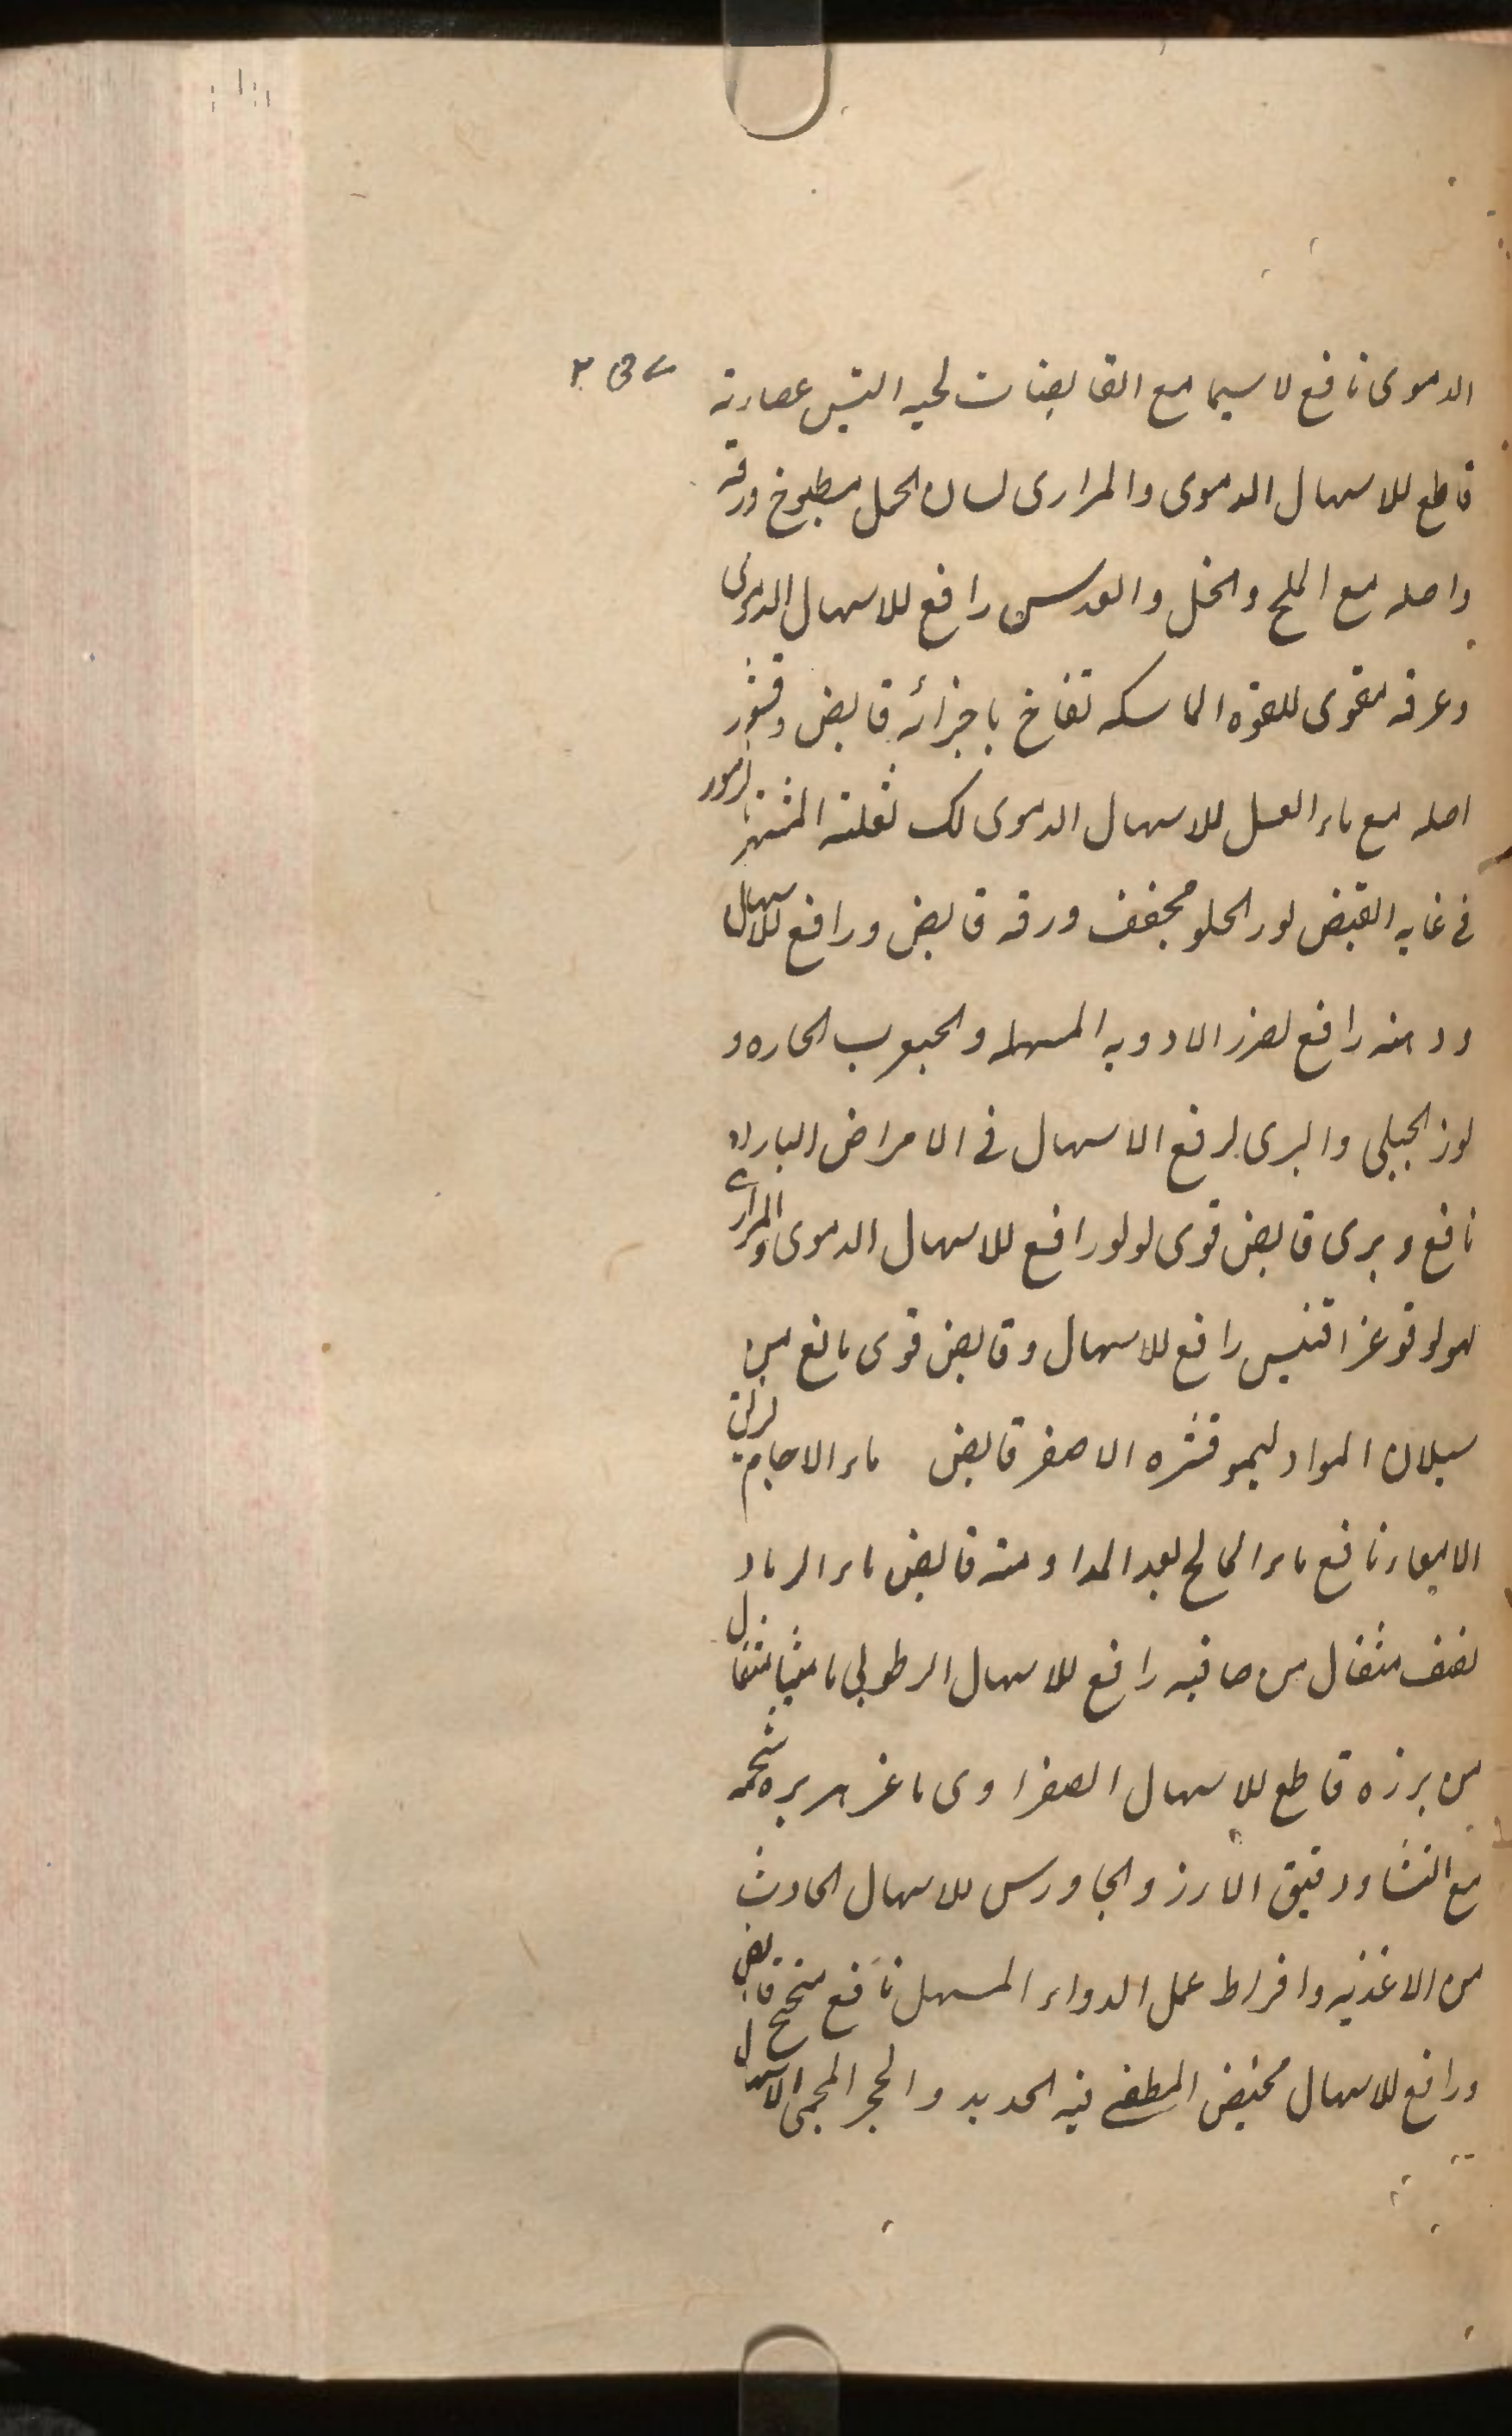 الدموی نافع لاسیما مع القابضات لحیه التیس عصارته
قاطع للاسهال الدموی والمراری لسان الحمل مطبوخ ورقه
واصله مع الملح والخل والعدس رافع للاسهال الدموی
وعرقه مقوی للقوه الماسکه تفاح باجزائه قابض وقشور
اصله مع ماء العسل للاسهال الدموی لک ثعلته المشتهر
فی غایه القبض لوز الحلو مجفف ورقه قابض ورافع للاسهال
ودهنه رافع لضرر الادویه المسهله والحبوب الحاره و
لوز الجبلی والبری لرفع الاسهال فی الامراض البارده
نافع وبری قابض قوی لولو رافع للاسهال الدموی والمراری
رافع للاسهال وقابض قوی مانع من
سیلان المواد لیمو قشره الاصفر قابض ماء الاجام
الامعاء نافع ماء المالح بعد المداومته قابض ماء الرماد
نصف مثقال من صافیه رافع للاسهال الرطوبی مامیثا مثقال
من برزه قاطع للاسهال الصفراوی شحمه
مع النشا ودقیق الارز والجاورس للاسهال الحادث
من الاغذیه وافراط عمل الدواء المسهل نافع قابض
ورافع للاسهال مخیض المطفی فیه الحدید والحجر المحمی الاسهال